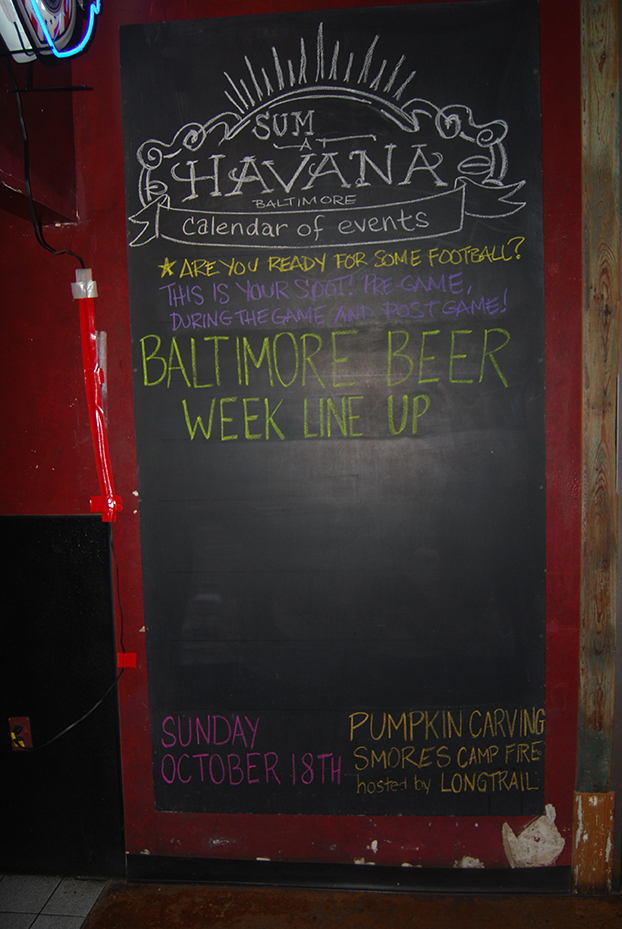 SUM
A
HAVANA
BALTIMORE
calendar of events
★ ARE YOU READY FOR SOME FOOTBALL?
THIS IS YOUR SPOT! PRE GAME,
DURING THE GAME AND POST GAME!
BALTIMORE BEER
WEEK LINE UP
SUNDAY
OCTOBER 18TH
PUMPKIN CARVING
SMORES CAMP FIRE
hosted by LONGTRAIL